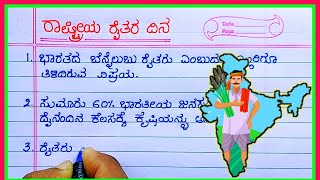 ರಾಷ್ಟ್ರೀಯ ರೈತರ ದಿನ
Date
Page
1. ಭಾರತದ ಬೆನ್ನೆಲುಬು ರೈತರು ಎಂಬುದು
ತಿಳಿದಿರುವ ವಿಷಯ.
2. ಸುಮಾರು 60% ಭಾರತೀಯ
ದೈನಂದಿನ ಕೆಲಸಕ್ಕೆ ಕೃಷಿಯನ್ನು
3. ರೈತರು